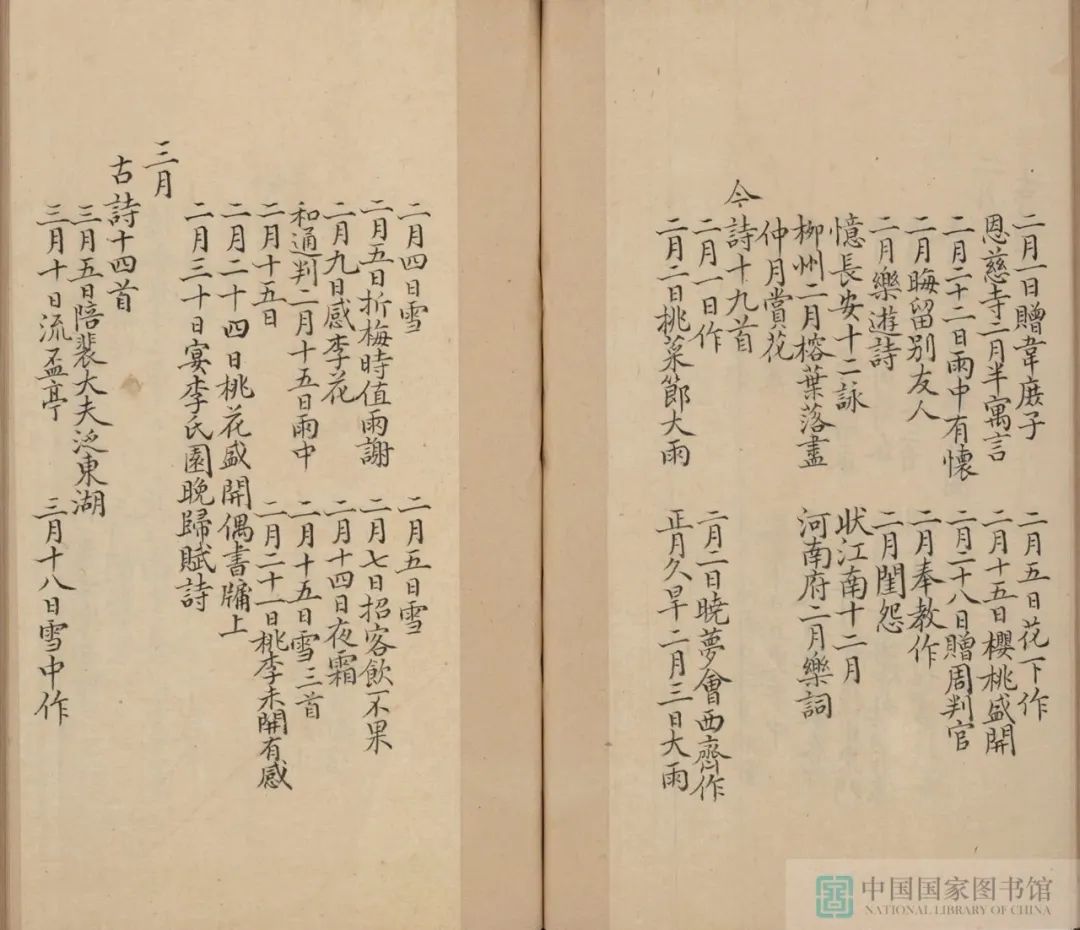 二月一日贈韋庶子 二月五日花下作
恩慈寺二月半寓言 二月十五日櫻桃盛開
二月二十二日雨中有懷 二月二十八日贈周判官
二月晦留别友人 二月奉教作
二月樂遊詩 二月閨怨
憶長安十二詠 狀江南十二月
柳州二月榕葉落盡 河南府二月樂詞
仲月賞花
今詩十九首
二月一日作 二月二日曉夢會西齋作
二月二日桃菜節大雨 正月久旱二月三日大雨
二月四日雪 二月五日雪
二月五日折梅時值雨謝 二月七日招客飲不果
二月九日感李花 二月十四日夜霜
和通判二月十五日雨中 二月十五日雪三首
二月十五日 二月二十一日桃李未開有感
二月二十四日桃花盛開偶書牖上
二月三十日宴李氏園晚歸賦詩
三月
古詩十四首
三月五日陪裴大夫泛東湖
三月十日流盃亭 三月十八日雪中作
中国国家图书馆
NATIONAL LIBRARY OF CHINA